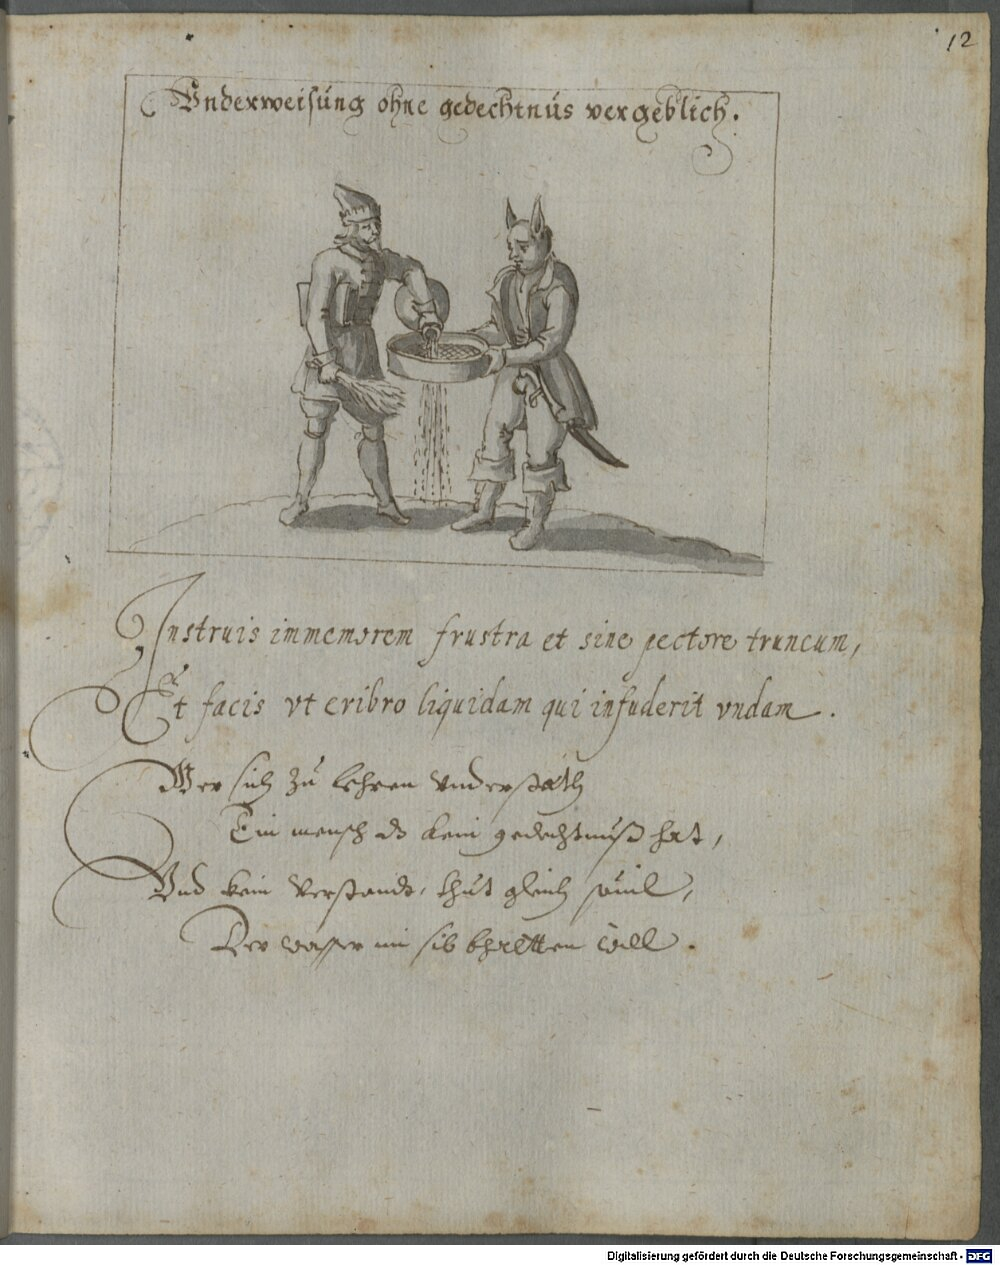 12
Vnderweisung ohne gedechtnus vergeblich.
Instruis immemorem frustra et sine pectore truncum,
Et facis vt cribro liquidam qui infuderit vndam.
Wer sich zu lehren vnderstath
Ein mensch ds kein gedechtnuß hat,
Vnd kein verstandt, thut gleich souil,
Der wasser im sib bhaltten will.
Digitalisierung gefördert durch die Deutsche Forschungsgemeinschaft - DFG